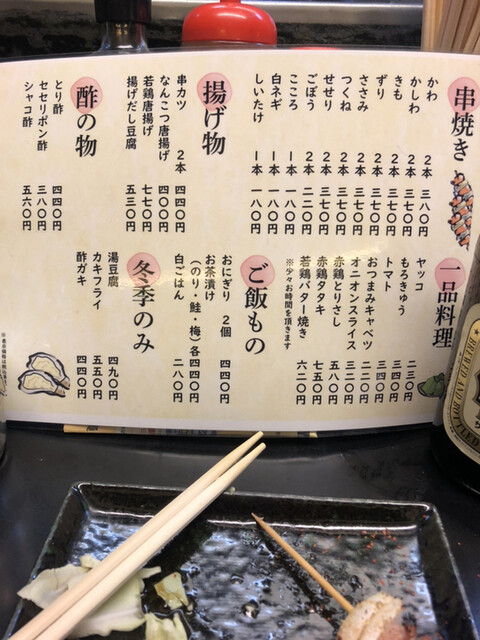 串焼き
かわ 2本 三八〇円
かしわ 2本 三七〇円
きも 2本 三七〇円
ずり 2本 三七〇円
ささみ 2本 三七〇円
つくね 2本 三七〇円
せせり 2本 三七〇円
ごぼう 2本 二二〇円
こころ 1本 一八〇円
白ネギ 1本 一八〇円
しいたけ 1本 一八〇円
揚げ物
串カツ 2本 四四〇円
なんこつ唐揚げ 四〇〇円
若鶏唐揚げ 七七〇円
揚げだし豆腐 五三〇円
酢の物
とり酢 四四〇円
セセリポン酢 三八〇円
シャコ酢 五六〇円
一品料理
ヤッコ 二三〇円
もろきゅう 三四〇円
トマト 三四〇円
おつまみキャベツ 二二〇円
オニオンスライス 三二〇円
赤鶏とりさし 七五〇円
赤鶏タタキ 七五〇円
若鶏バター焼き 六二〇円
※少々お時間を頂きます
ご飯もの
おにぎり 2個 四四〇円
お茶漬け
(のり・鮭・梅)各四四〇円
白ごはん 二八〇円
冬季のみ
湯豆腐 四九〇円
カキフライ 五五〇円
酢ガキ 四四〇円
BREWED AND BOTTLED